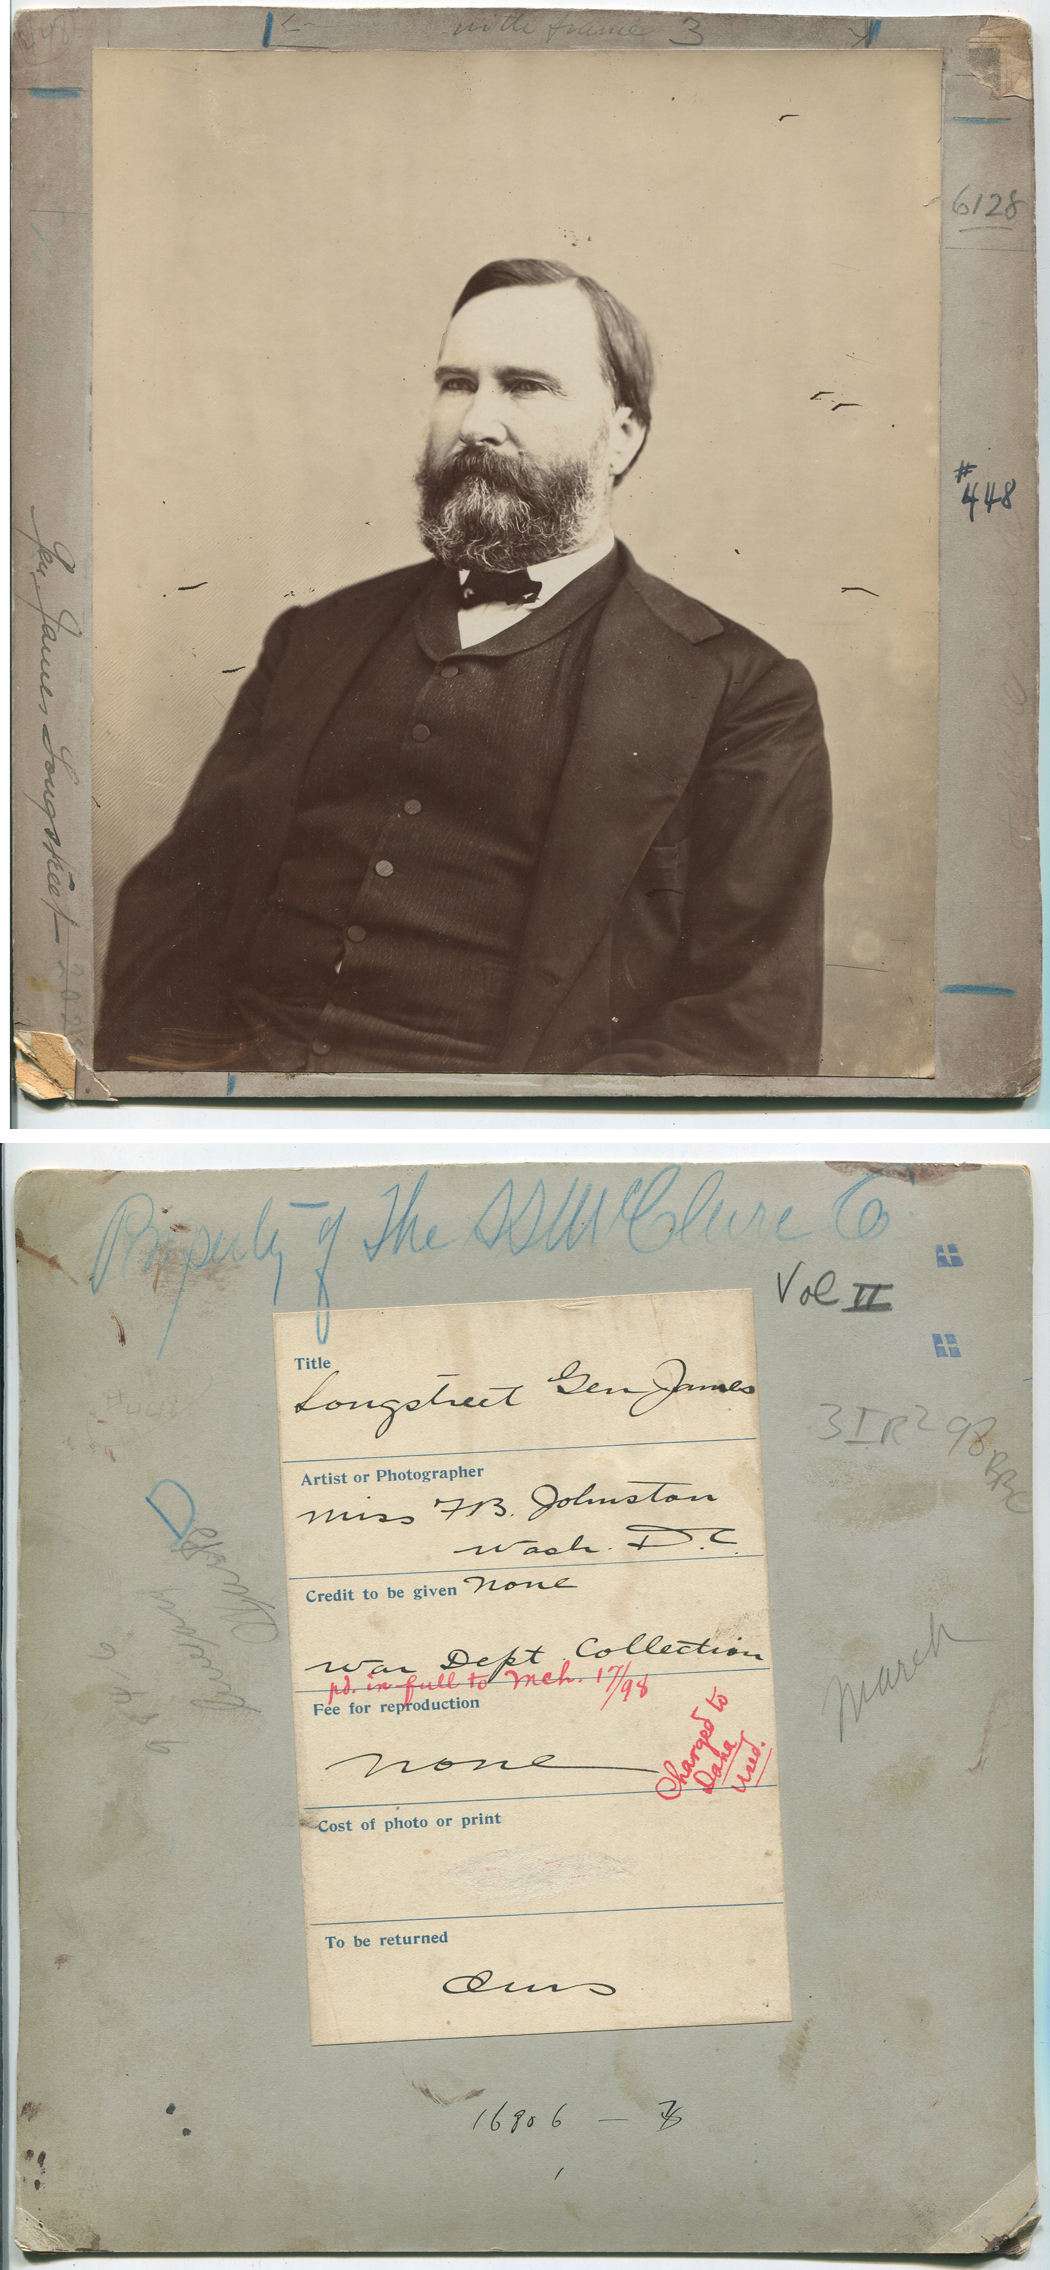 with frame 3
6128
#
448
Gen. James Longstreet
Property of The SS McClure Co
Vol II
Title
Longstreet Gen James
Artist or Photographer
Miss F.B. Johnston
Wash. D.C.
Credit to be given none
War Dept Collection
pd. in full to Mch. 17/98
Fee for reproduction
none
Charged to
Dana
Used.
Cost of photo or print
To be returned
Ours
March
D